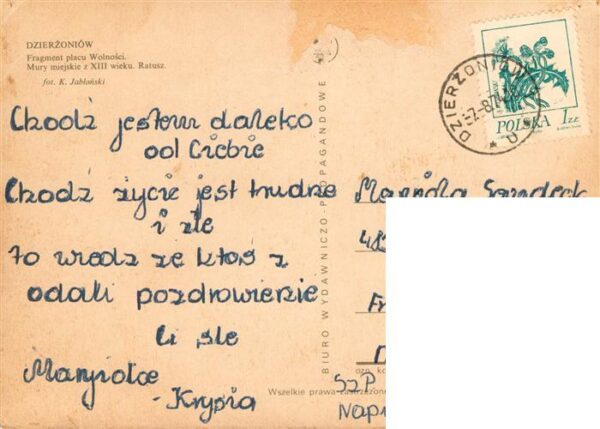 DZIERŻONIÓW
Fragment placu Wolności.
Mury miejskie z XIII wieku. Ratusz.
fot. K. Jabłoński
POLSKA 1 ZŁ
Chodź jestem daleko
od Ciebie
Chodź życie jest trudne
i złe
to wiedz że ktoś z
odali pozdrowienie
Ci śle
- Krysia
BIURO WYDAWNICZO-PROPAGANDOWE
48
Fr
Wszelkie prawa zastrzeżone
SZP
Napr